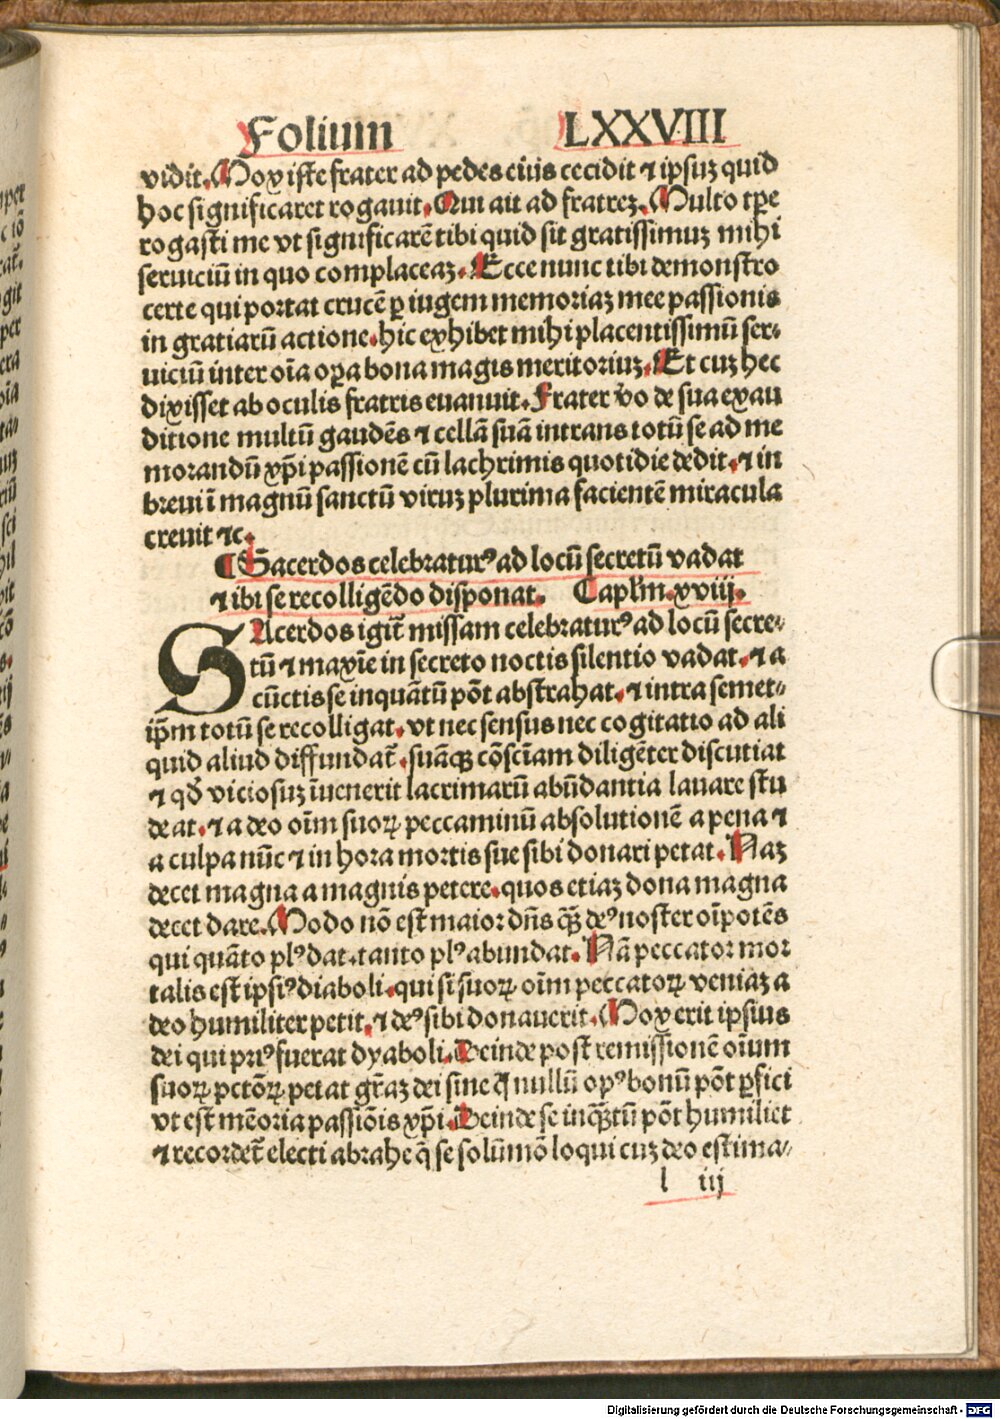 Folium LXXVIII
vidit. Mox iste frater ad pedes eius cecidit ⁊ ipsuz quid
hoc significaret rogauit. Qui ait ad fratrez. Multo tꝑe
rogasti me vt significarē tibi quid sit gratissimuz mihi
seruiciū in quo complaceaz. Ecce nunc tibi demonstro
certe qui portat crucē ꝑ iugem memoriaz mee passionis
in gratiarū actione. hic exhibet mihi placentissimū ser-
uiciū inter oīa oꝑa bona magis meritoriuz. Et cuz hec
dixisset ab oculis fratris euanuit. Frater v̄o de sua exau
ditione multū gaudēs ⁊ cellā suā intrans totū se ad me
morandū xp̄i passionē cū lachrimis quotidie dedit. ⁊ in
breui ī magnū sanctū viruz plurima facientē miracula
creuit ⁊c.
¶ Sacerdos celebraturꝰ ad locū secretū vadat
⁊ ibi se recolligēdo disponat. Caplʼm. xviij.
SAcerdos igit̄ missam celebraturꝰ ad locū secre-
tū ⁊ maxīe in secreto noctis silentio vadat. ⁊ a
cūctis se inquātū pōt abstrahat. ⁊ intra semet-
ip̄m totū se recolligat. vt nec sensus nec cogitatio ad ali
quid aliud diffundat̄. suāqꝫ cōsciā̄m diligēter discutiat
⁊ qd̄ viciosuz īuenerit lacrimarū abūdantia lauare stu
deat. ⁊ a deo oīm suoꝝ peccaminū absolutionē a pena ⁊
a culpa nūc ⁊ in hora mortis sue sibi donari petat. Naz
decet magna a magnis petere. quos etiaz dona magna
decet dare. Modo nō est maior dn̄s qꝫ̄ deꝰ noster oīpotēs
qui quāto plꝰ dat. tanto plꝰ abundat. Nā peccator mor
talis est ipsiꝰ diaboli. qui si suoꝝ oīm peccatoꝝ veniaz a
deo humiliter petit. ⁊ deꝰ sibi donauerit. Mox erit ipsius
dei qui priꝰ fuerat dyaboli. Deinde post remissionē oīum
suoꝝ pctōꝝ petat gr̄az dei sine q̄ nullū opꝰ bonū pōt ꝑfici
vt est mēoria passiōis xp̄i. Deinde se inqꝫ̄tū pōt humiliet
⁊ recordet̄ electi abrahe q̄ se solūmō loqui cuz deo estima-
l iij
Digitalisierung gefördert durch die Deutsche Forschungsgemeinschaft - DFG